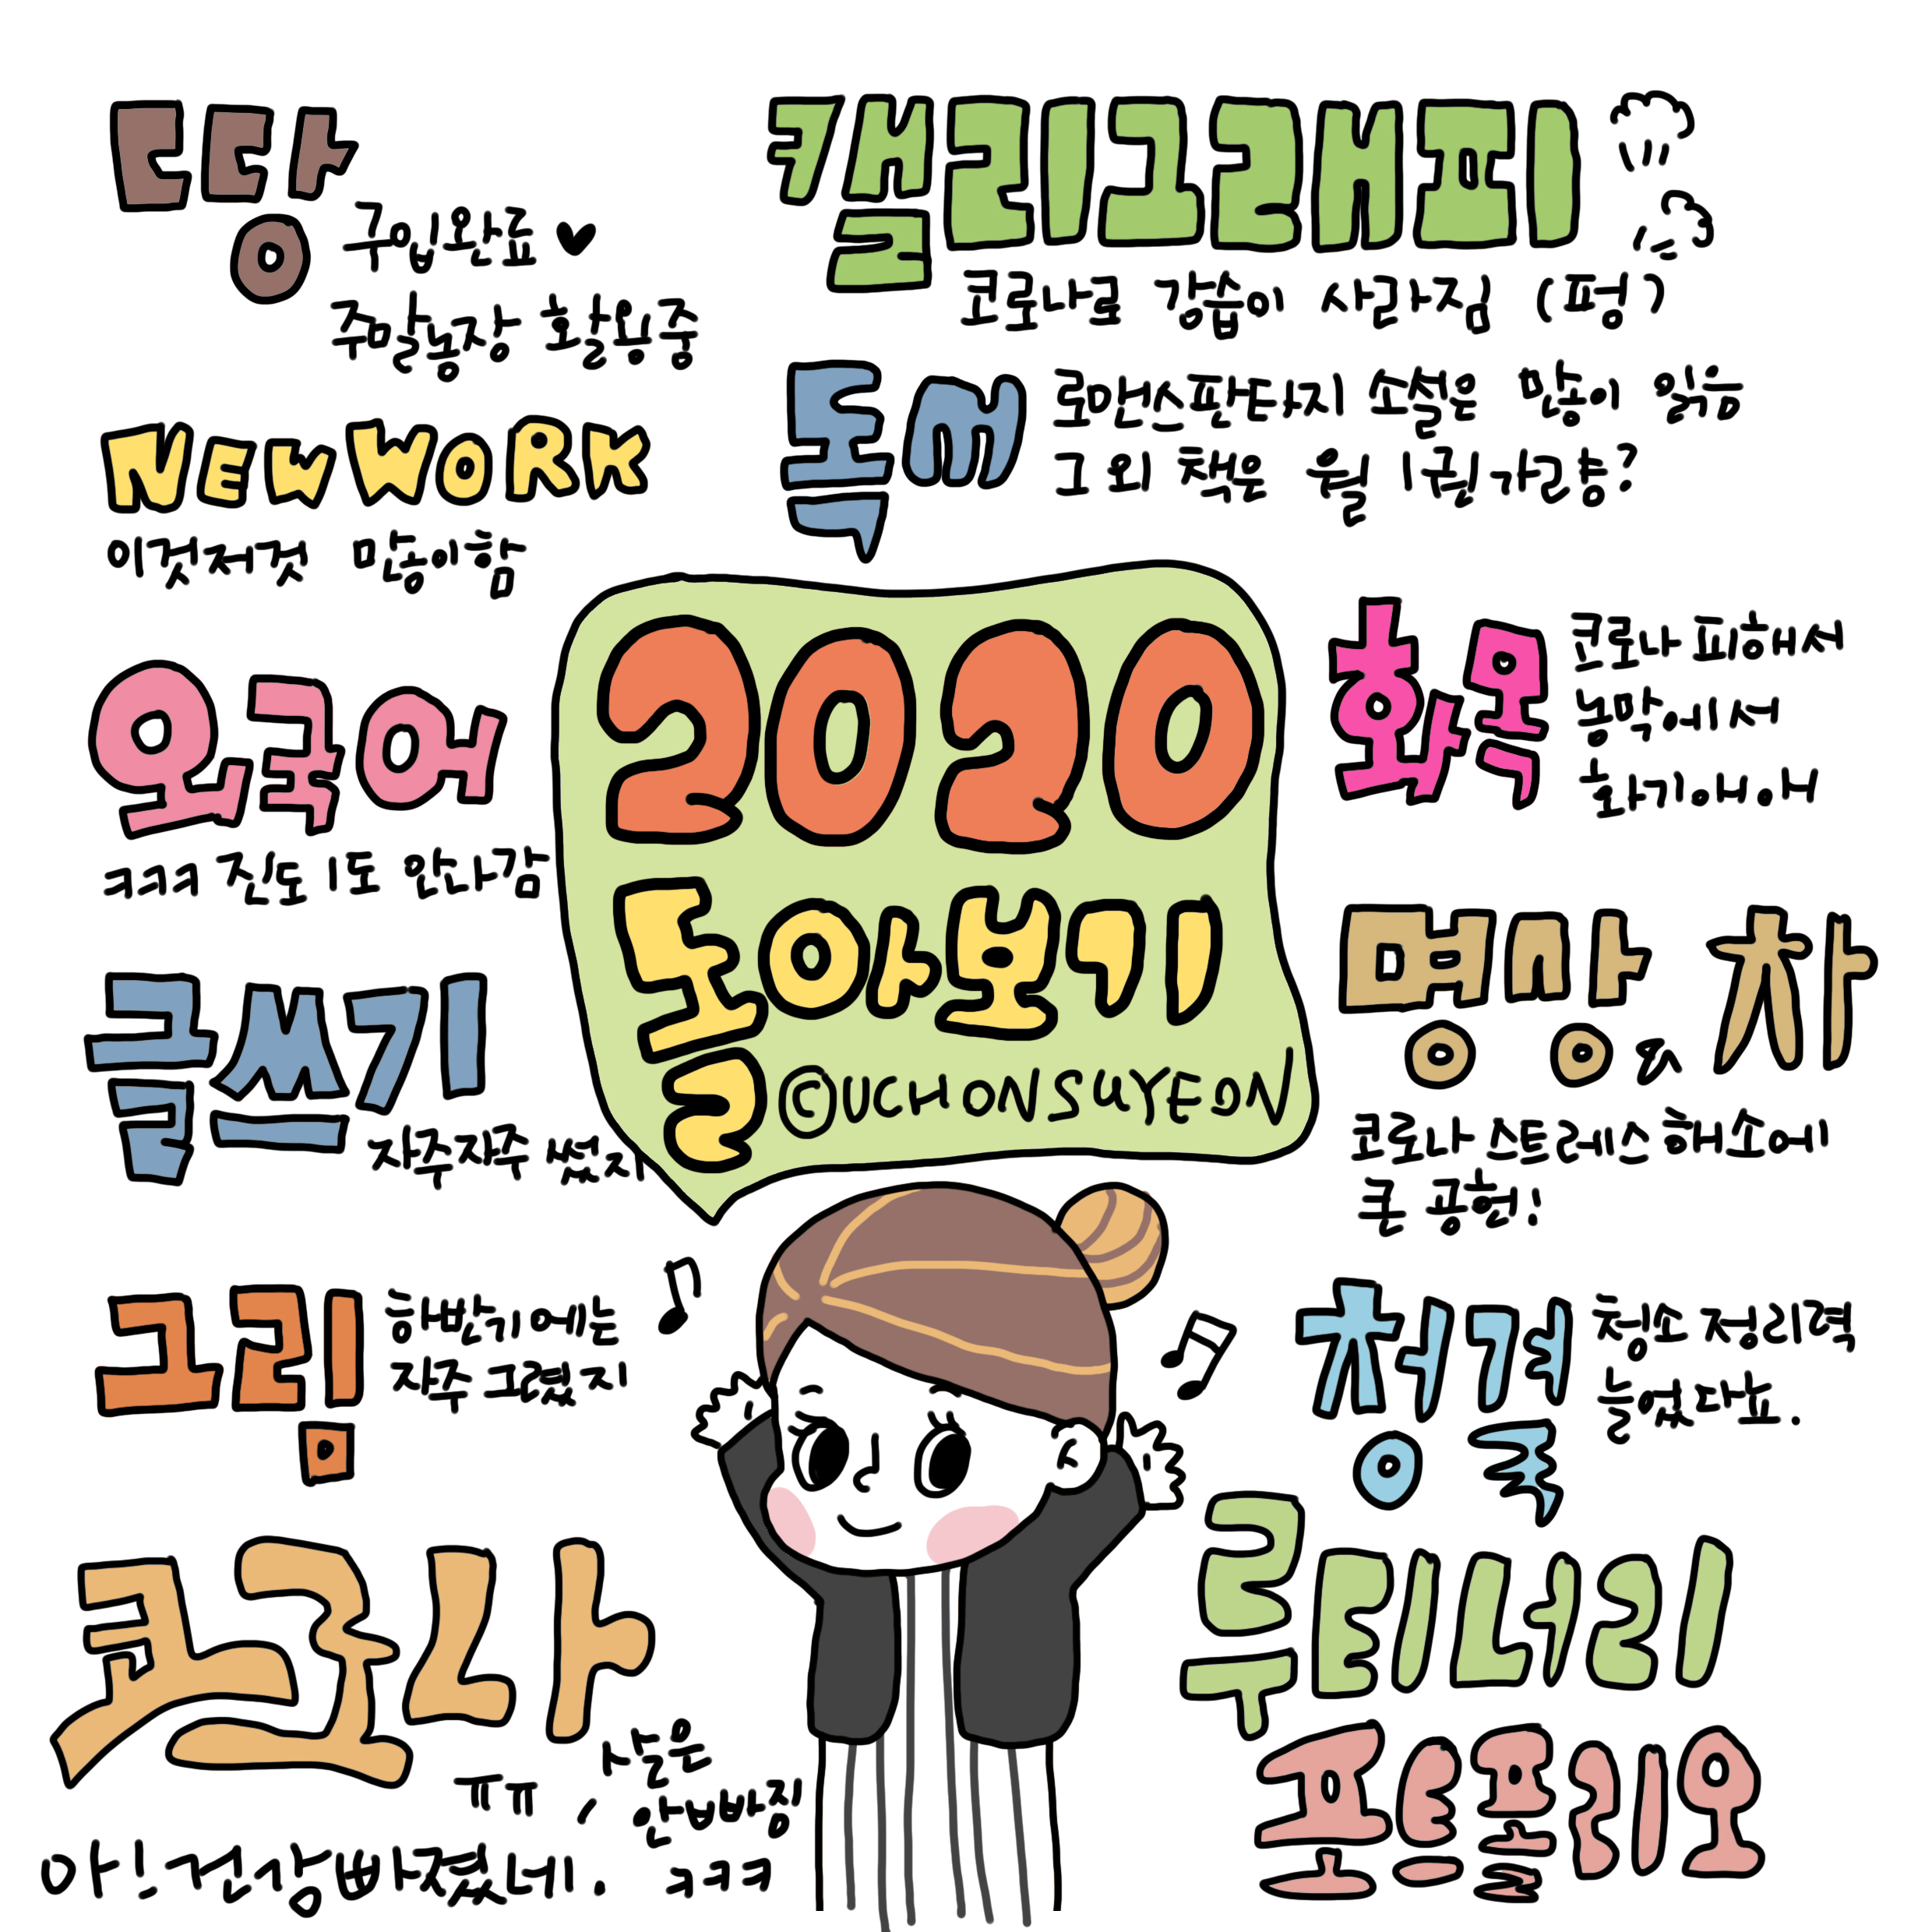 땅
구입완료
주말농장 활용중
캘리그래피
코로나로 강습이 사라짐 (펑?)
NEW WORK
이것저것 많이함
독서
로맨스판타지 소설은 많이 읽음
그 외 책은 월 1권가량?
외국어
ㅋㅋㅋ 진도 1도 안나감
2020
돌아보기
©UCHONSUYEON
화목
코로나 피해서
농막에서
화기애애
글쓰기
자주자주 썼지
명상 & 차
코로나 스트레스 해소에
큰 공헌!
그림
하반기에는
자주 그렸지
청결
청소 정리력
늘었다죠.
코로나
ㅠㅠ
살은
안빠짐
ㅋㅋㅋ
아! 건강빠졌네.
루티너리
포트폴리오